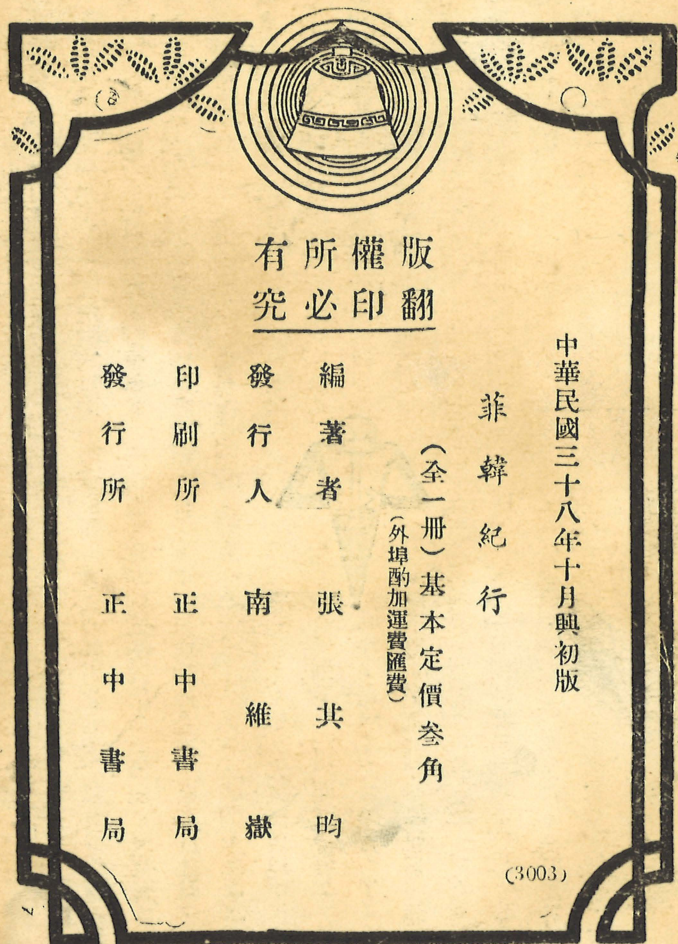 版權所有
翻印必究
中華民國三十八年十月興初版
菲韓紀行
（全一冊）基本定價叄角
（外埠酌加運費匯費）
編著者 張其昀
發行人 南維嶽
印刷所 正中書局
發行所 正中書局
(3003)